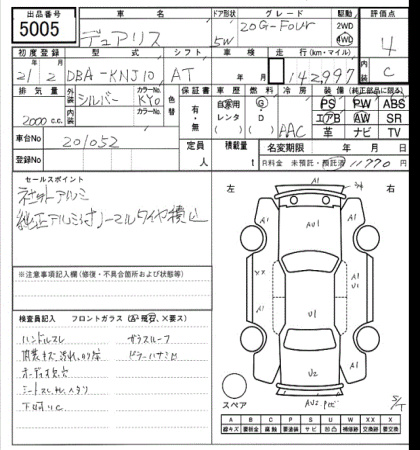 出品番号 車名 ドア形状 グレード 駆動 評価点
5005 デュアリス 5W 20G-Four 2WD 4WD 4
初度登録 型式 シフト 車検 走行(km・マイル) 内装
21/2 DBA-KNJ10 AT 年 月 142,997 C
排気量 外装 カラーNo. 色替 保証書 車歴 燃料 冷房 装備(純正部品に限る)
2000cc シルバー KY0 有・無 自家用 レンタ G・D AAC PS PW ABS
内装 カラーNo. エアB AW SR
車台No 201052 革 ナビ TV
登録No 定員 人 積載量 t 名変期限 年 月 日
R料金 未預託・預託済 11770 円
セールスポイント
社外アルミ
純正アルミ付ノーマルタイヤ積込
※注意事項記入欄(修復・不具合箇所および改造点等)
検査員記入 フロントガラス(A・飛石・×要ス)
ハンドルスレ ガラスルーフ
内装キズ、汚れ、
オーディオ欠、穴
シートスレ、
左 右
A1
A1
AU1
A1
U1
A1
U2
スペア
S/T
A B C P S U W XX X
線キズ 要板金 腐蝕 要塗装 サビ 凹凸 補修跡 交換済 要交換